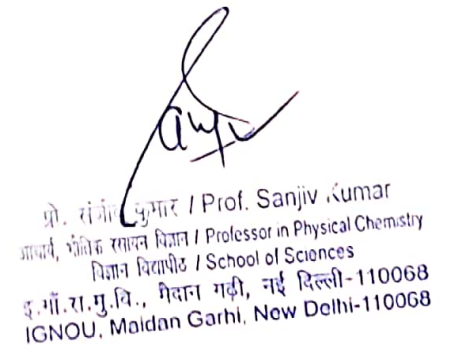 Sanjiv
प्रो. संजीव कुमार / Prof. Sanjiv Kumar
आचार्य, भौतिक रसायन विज्ञान / Professor in Physical Chemistry
विज्ञान विद्यापीठ / School of Sciences
इ.गाँ.रा.मु.वि., मैदान गढ़ी, नई दिल्ली-110068
IGNOU, Maidan Garhi, New Delhi-110068